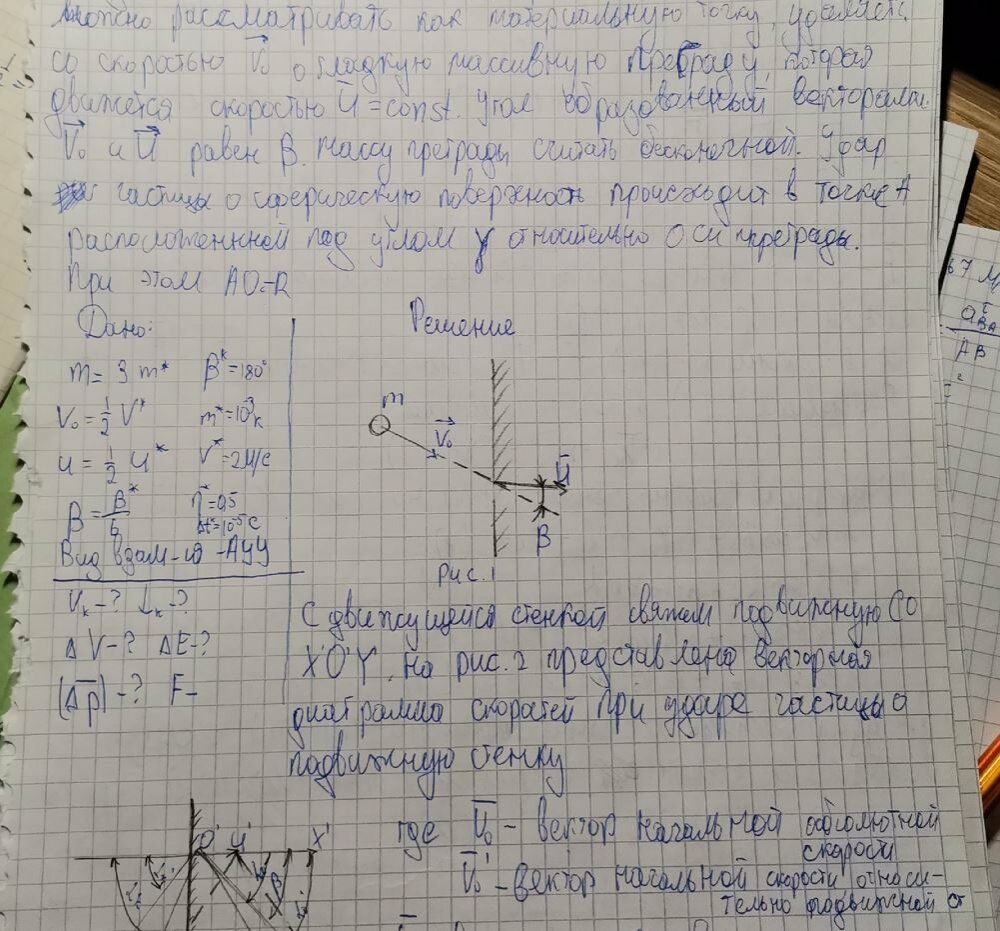 можно рассматривать как материальную точку, ударяется
со скоростью V₀ о гладкую массивную преграду, которая
движется скоростью U = const. Угол образованный векторами
V₀ и U равен β. Массу преграды считать бесконечной. Удар
частицы о сферическую поверхность происходит в точке A
расположенной под углом γ относительно оси преграды.
При этом AO=R
Дано:
m = 3 m* β* = 180°
V₀ = 1/2 V* m* = 10⁻³ к
U = 1/2 U* V* = 2 м/с
β = β*/6 η* = 0,5
Δt* = 10⁻⁵ с
Вид взаим-ия - АУУ
Vₖ - ? Lₖ - ?
ΔV - ? ΔE - ?
(Δp) - ? F -
Решение
m
V₀
U
β
Рис. 1
С движущейся стенкой свяжем подвижную СО
X'O'Y'. На рис. 2 представлена векторная
диаграмма скоростей при ударе частицы о
подвижную стенку
O' U' X'
β
где U₀ - вектор начальной абсолютной
скорости
U₀' - вектор начальной скорости относи-
тельно подвижной
67
AB